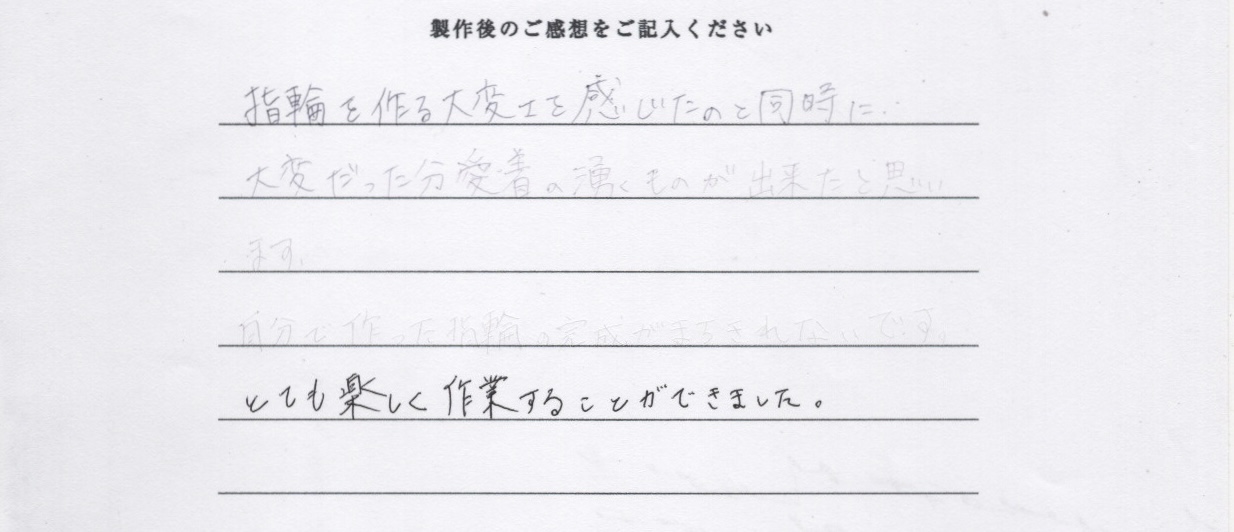 製作後のご感想をご記入ください
指輪を作る大変さを感じたのと同時に
大変だった分愛着の湧くものが出来たと思い
ます。
自分で作った指輪の完成がまちきれないです。
とても楽しく作業することができました。